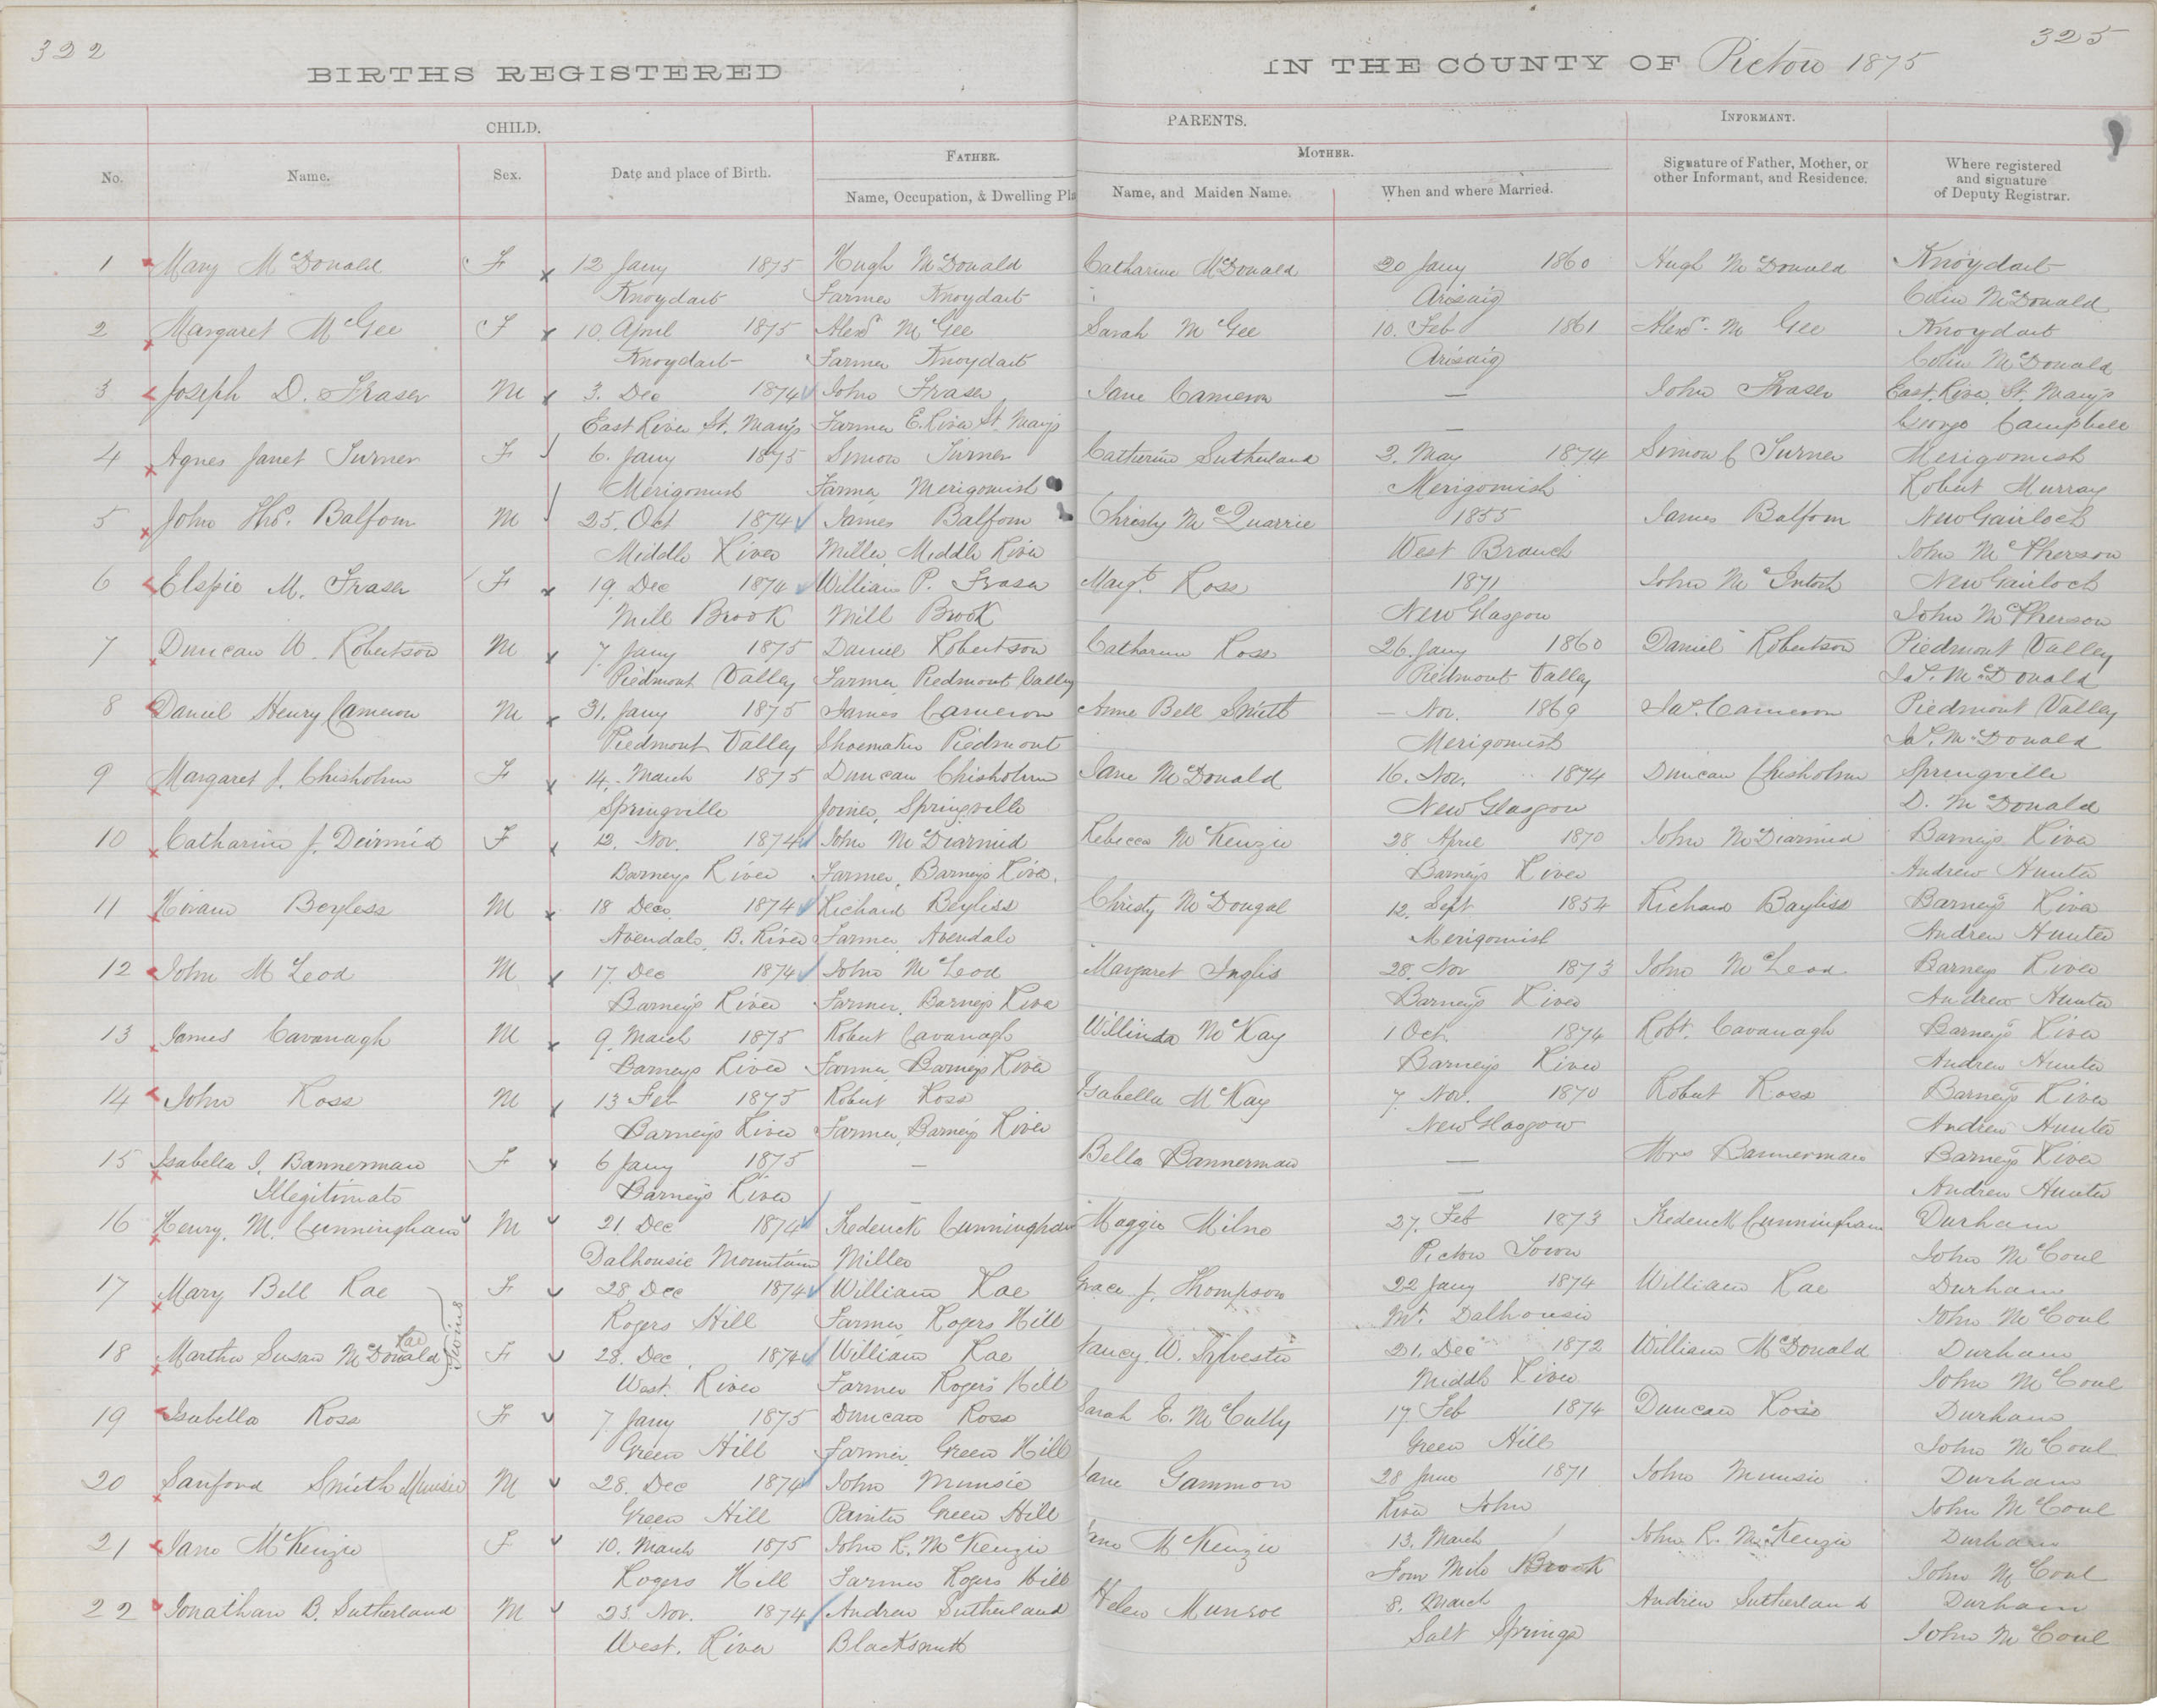 322
325
BIRTHS REGISTERED IN THE COUNTY OF Pictou 1875
CHILD. PARENTS. INFORMANT.
FATHER. MOTHER.
No. Name. Sex. Date and place of Birth. Name, Occupation, & Dwelling Pla Name, and Maiden Name. When and where Married. Signature of Father, Mother, or other Informant, and Residence. Where registered and signature of Deputy Registrar.
1 Mary McDonald F 12 Jany 1875 Hugh McDonald Catharine McDonald 20 Jany 1860 Hugh McDonald Knoydart
Knoydart Farmer Knoydart Arisaig Colin McDonald
2 Margaret McGee F 10. April 1875 Alexr McGee Sarah McGee 10. Feb 1861 Alexr. McGee Knoydart
Knoydart Farmer Knoydart Arisaig Colin McDonald
3 Joseph D. Fraser M 3. Dec 1874 John Fraser Jane Cameron — John Fraser East River St. Marys
East River St. Marys Farmer E. River St. Marys — George Campbell
4 Agnes Janet Turner F 6. Jany 1875 Simon Turner Catherine Sutherland 2. May 1874 Simon C Turner Merigomish
Merigomish Farmer Merigomish Merigomish Robert Murray
5 John Thos. Balfour M 25. Oct 1874 James Balfour Christy McQuarrie 1855 James Balfour New Gairloch
Middle River Miller, Middle River West Branch John McPherson
6 Elspie M. Fraser F 19. Dec 1874 William P. Fraser Margt. Ross 1871 John McIntosh New Gairloch
Mill Brook Mill Brook New Glasgow John McPherson
7 Duncan W. Robertson M 7. Jany 1875 Daniel Robertson Catharine Ross 26. Jany 1860 Daniel Robertson Piedmont Valley
Piedmont Valley Farmer Piedmont Valley Piedmont Valley Jas. McDonald
8 Daniel Henry Cameron M 31. Jany 1875 James Cameron Anne Bell Smith — Nov. 1869 Jas. Cameron Piedmont Valley
Piedmont Valley Shoemaker Piedmont Merigomish Jas. McDonald
9 Margaret J. Chisholm F 14. March 1875 Duncan Chisholm Jane McDonald 16. Nov. 1874 Duncan Chisholm Springville
Springville Joiner, Springville New Glasgow D. McDonald
10 Catharine J. Deirmid F 12. Nov. 1874 John McDiarmid Rebecca McKenzie 28 April 1870 John McDiarmid Barneys River
Barneys River Farmer, Barneys River. Barneys River Andrew Hunter
11 Hiram Beyless M 18 Dec. 1874 Richard Beyliss Christy McDougal 12. Sept 1854 Richard Bayliss Barneys River
Avendale, B. River Farmer, Avendale Merigomish Andrew Hunter
12 John McLeod M 17. Dec 1874 John McLeod Margaret Inglis 28. Nov 1873 John McLeod Barneys River
Barneys River Farmer, Barneys River Barneys River Andrew Hunter
13 James Cavanagh M 9. March 1875 Robert Cavanagh Willinda McKay 1 Oct. 1874 Robt. Cavanagh Barneys River
Barneys River Farmer, Barneys River Barneys River Andrew Hunter
14 John Ross M 13 Feb 1875 Robert Ross Isabella McKay 7. Nov. 1870 Robert Ross Barneys River
Barneys River Farmer, Barneys River New Glasgow Andrew Hunter
15 Isabella J. Bannerman F 6 Jany 1875 — Bella Bannerman — Mrs Bannerman Barneys River
Illegitimate Barneys River — — Andrew Hunter
16 Henry. M. Cunningham M 21. Dec 1874 Frederick Cunningham Maggie Milne 27. Feb 1873 Frederick Cunningham Durham
Dalhousie Mountain Miller Pictou Town John McCoul
17 Mary Bell Rae F 28 Dec 1874 William Rae Grace J. Thompson 22 Jany 1874 William Rae Durham
Rogers Hill Farmer, Rogers Hill Mt. Dalhousie John McCoul
Twins
18 Martha Susan McDonald Rae F 28. Dec 1874 William Rae Nancy W. Sylvester 21. Dec 1872 William McDonald Durham
West River Farmer Rogers Hill Middle River John McCoul
19 Isabella Ross F 7. Jany 1875 Duncan Ross Sarah E. McCully 17 Feb 1874 Duncan Ross Durham
Green Hill Farmer, Green Hill Green Hill John McCoul
20 Sanford Smith Munsie M 28. Dec 1874 John Munsie Jane Gammon 28 June 1871 John Munsie Durham
Green Hill Painter Green Hill River John John McCoul
21 Jane McKenzie F 10. March 1875 John R. McKenzie Jane McKenzie 13. March John R. McKenzie Durham
Rogers Hill Farmer Rogers Hill Four Mile Brook John McCoul
22 Jonathan B. Sutherland M 23. Nov. 1874 Andrew Sutherland Helen Munroe 8. March Andrew Sutherland Durham
West. River Blacksmith Salt Springs John McCoul